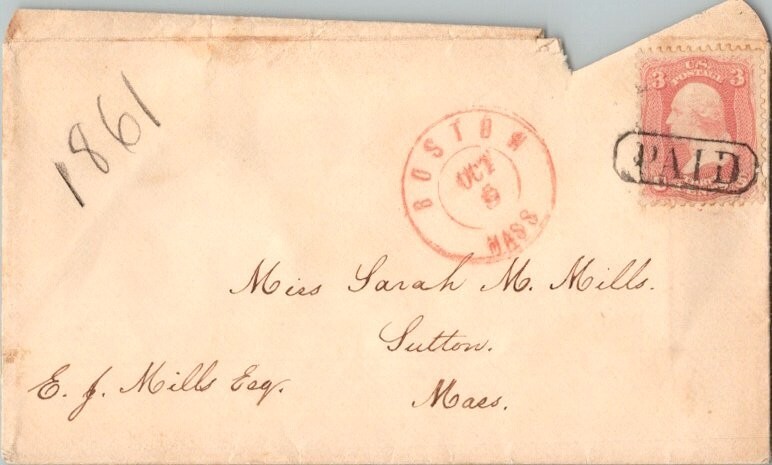 1861
BOSTON
OCT
8
MASS
3 U.S. 3
POSTAGE
PAID
Miss Sarah M. Mills.
Sutton.
Mass.
E. J. Mills Esq.